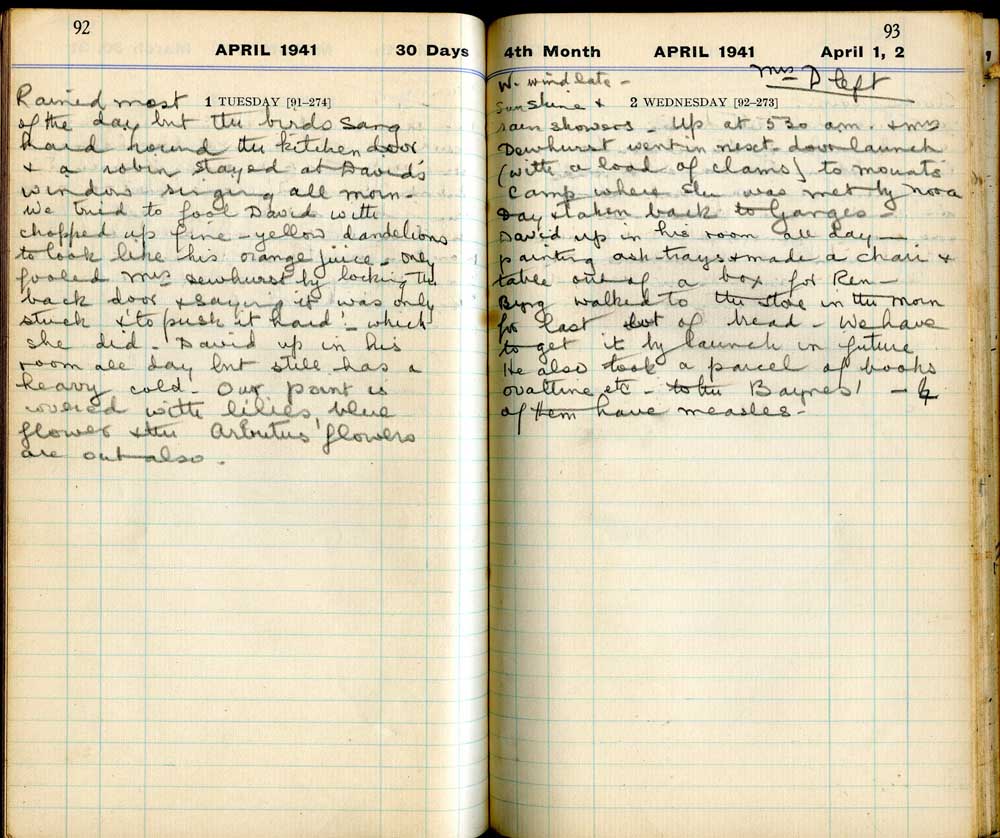 92
APRIL 1941 30 Days
1 TUESDAY [91-274]
Rained most
of the day but the birds sang
hard round the kitchen door
& a robin stayed at David's
window singing all morn-
We tried to fool David with
chopped up fine - yellow dandelions
to look like his orange juice - only
fooled Mrs Dewhurst by locking the
back door & saying it was only
stuck & "to push it hard"! - which
she did - David up in his
room all day but still has a
heavy cold - Our point is
covered with lilies, blue
flower & the Arbutus flowers
are out also.
93
4th Month APRIL 1941 April 1, 2
Mrs D left
W. wind late -
Sunshine &
2 WEDNESDAY [92-273]
rain showers - Up at 530 am. & Mrs
Dewhurst went in next-door launch
(with a load of clams) to mounts
Camp where she was met by Nora
Day & taken back to Ganges -
David up in his room all day -
painting ash-trays & made a chair &
table out of a box for Ren -
Byng walked to the store in the morn
for last lot of bread - We have
to get it by launch in future
He also took a parcel of books
ovaltine etc - to the Baynes' - 4
of them have measles -